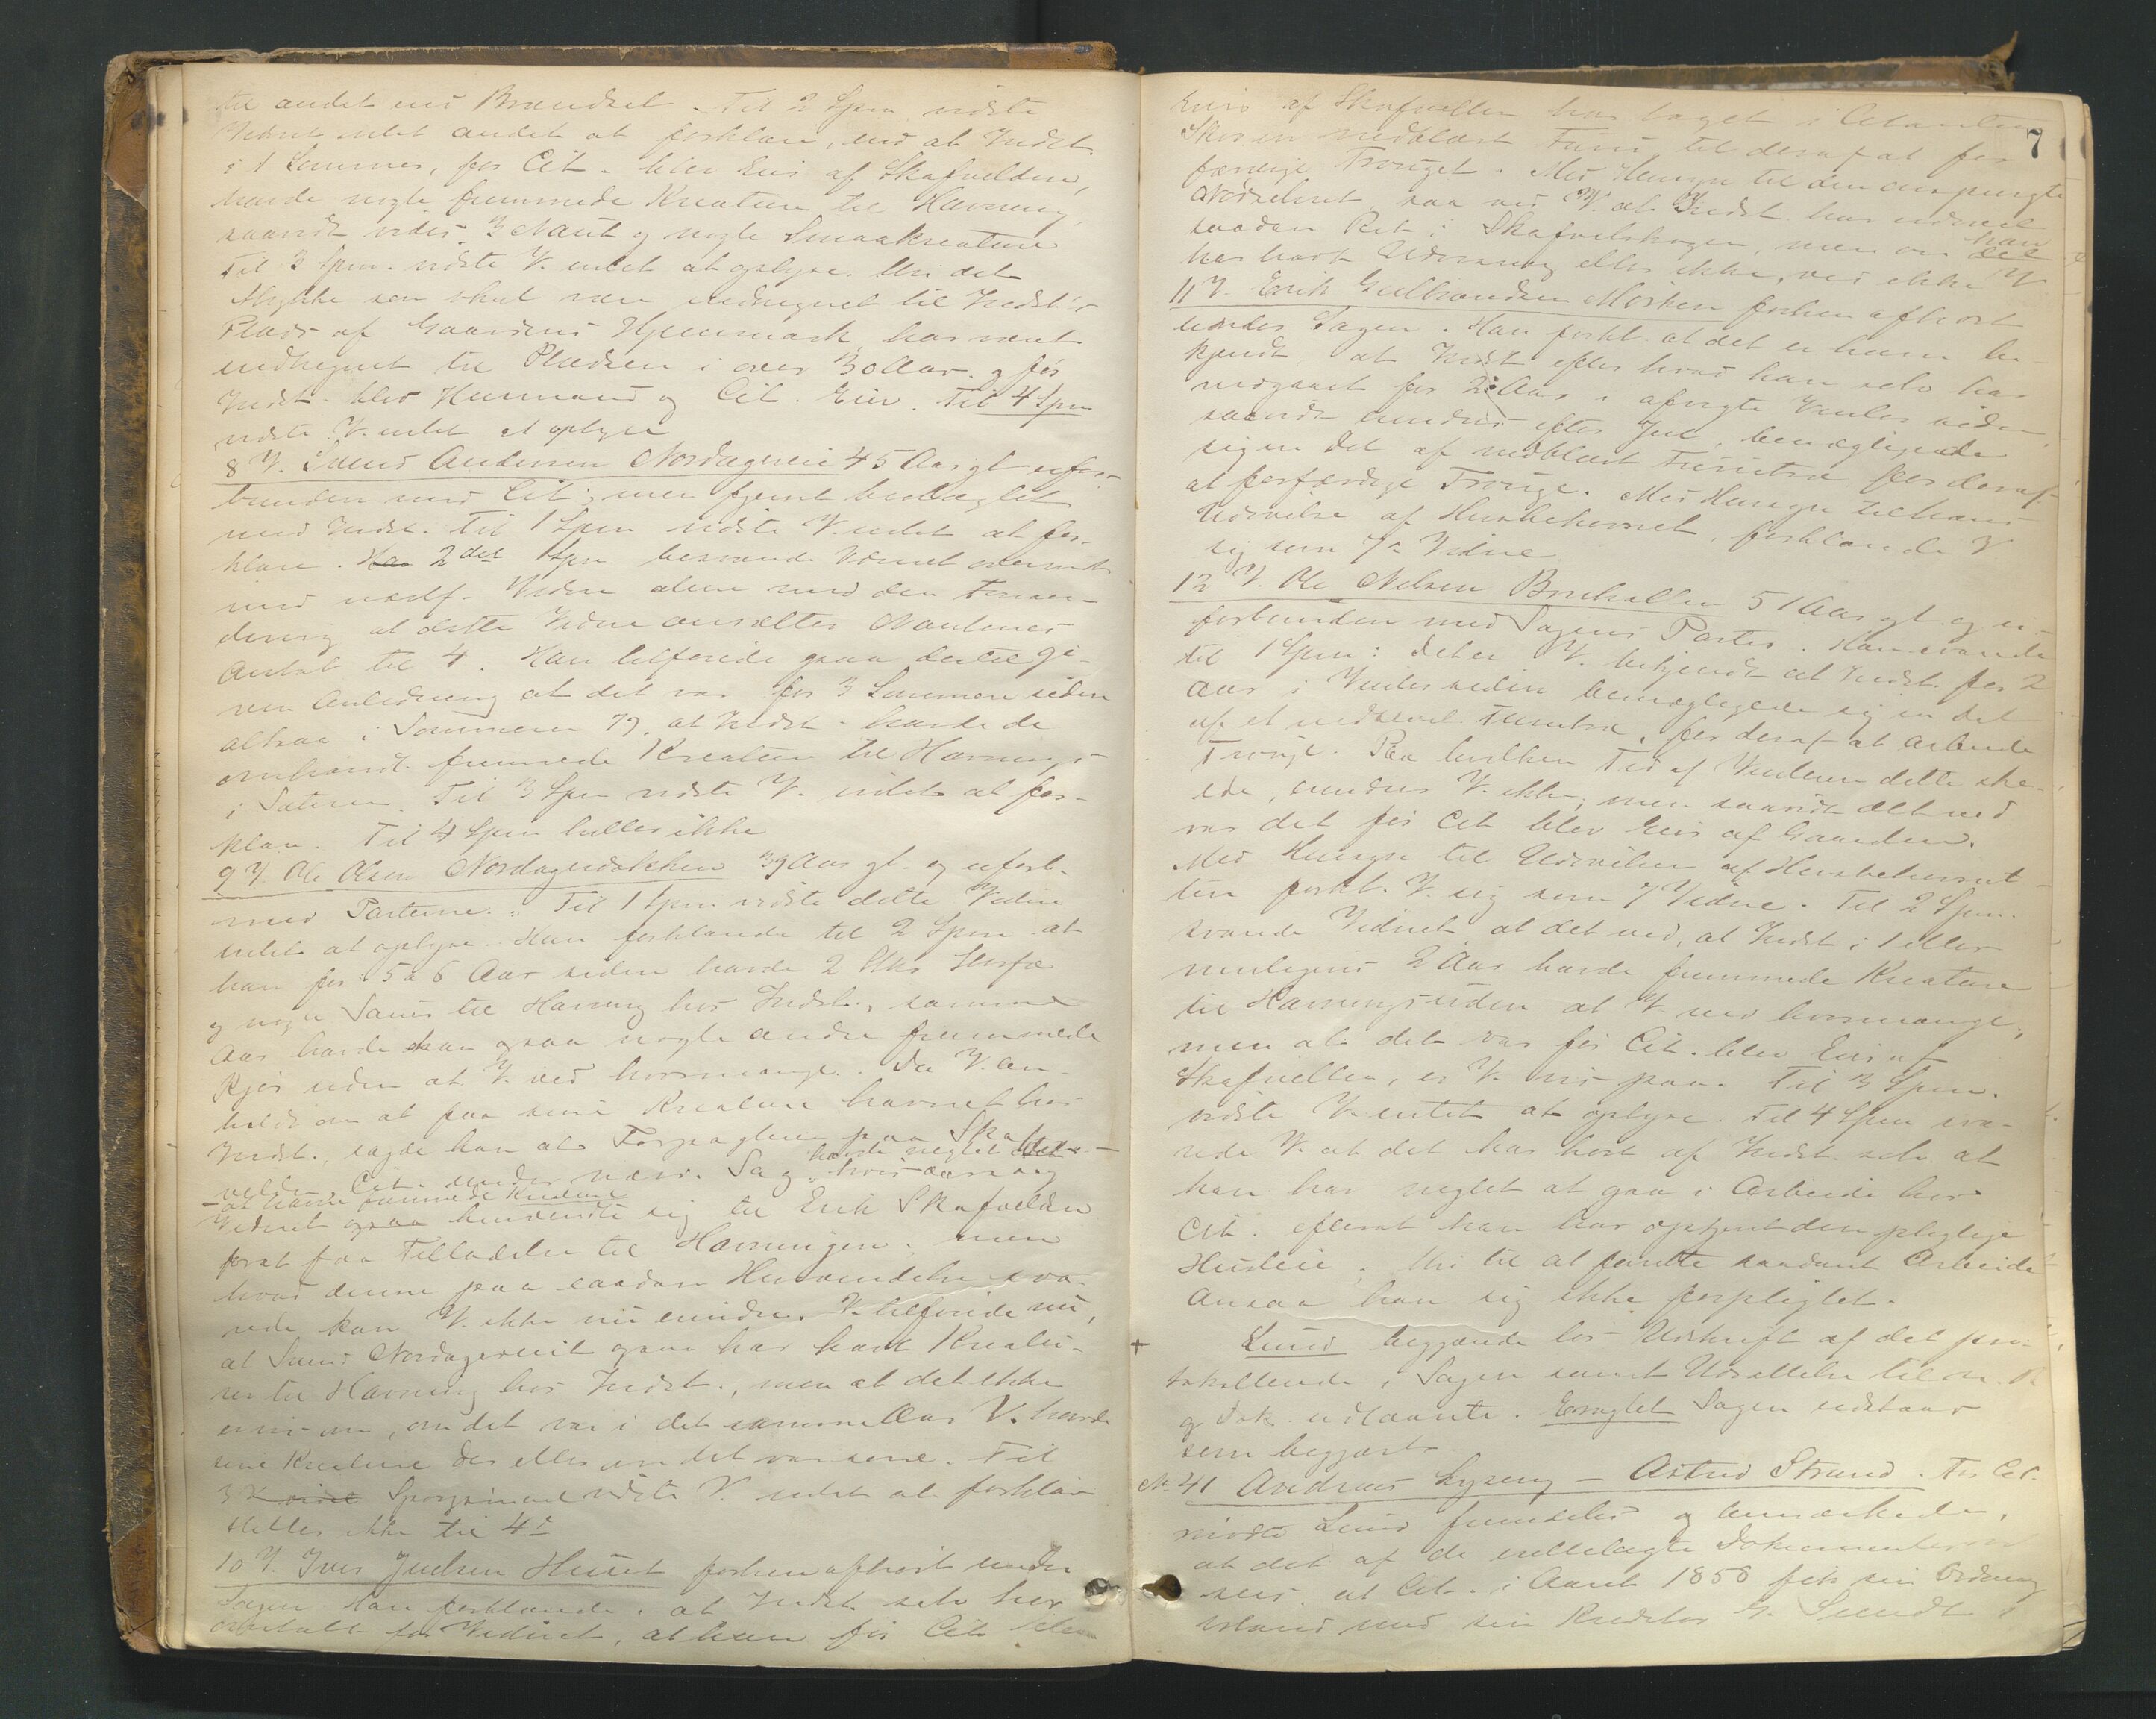 til andet end Brændsel. Til 2 Spm vidste
Vidnet intet andet at forklare, end at Indst.
i 1 Sommer, før Cit. blev Eier af Skafvelden,
havde nogle fremmede Kreature til Havning,
saavidt vides 3 Naut og nogle Smaakreature
Til 3 Spm. vidste V. intet at oplyse. Uri det
Stykke som skal være indhegnet til Indst's
Plads af Gaardens Hjemmark, har været
indhegnet til Pladsen i over 30 Aar og før
Indst. blev Husmand og Cit. Eier. Til 4 Spm
vidste V. intet at oplyse
8 V. Svend Andersen Nordagereie 45 Aar gl ufor-
bunden med Cit; men fjernt beslægtet
med Indst. Til 1 Spm vidste V. intet at for-
klare. Han 2det Spm besvarede Vidnet overensst.
med næstf. Vidne alene med den Foran-
dring at dette Vidne ansætter Nautenes
Antal til 4. Han tilføiede paa dertil gi-
ven Anledning at det var for 3 Sommere siden
altsaa i Sommeren 79, at Indst. havde de
omhandl. fremmede Kreature til Havnings
i Sæteren. Til 3 Spm vidste V. intet at for-
klare. Til 4 Spm heller ikke
9 V. Ole Olsen Nordagerbakken 39 Aar gl. og uforb.
med Parterne. Til 1 Spm vidste dette Vidne
intet at oplyse. Han forklarede til 2 Spm at
han for 5 a 6 Aar siden havde 2 Stkr Storfæ
og nogle Sauer til Havning hos Indst., samme
Aar havde han ogsaa nogle andre fremmede
Kjør uden at V. ved hvormange. Da V. an-
holdt om at faa sine Kreature havnet hos
Indst. sagde han at Forpagteren paa Skaf-
velden, Cit. under nærv. Sag, havde negtet
- at havne fremmede Kreature
Vidnet ogsaa henvendte sig til Erik Skafvelden
forat faa Tilladelse til Havningen; men
hvad denne paa saadan Henvendelse sva-
rede kan V. ikke nu erindre. V. tilføiede nu,
at Svend Nordagereiet ogsaa har havt Kreatu-
rer til Havning hos Indst., men at det ikke
erindrer, om det var i det samme Aar V. havde
sine Kreature der eller om det var sene. Til
3 V vidst Spørgsmaal vidste V. intet at forklare
Heller ikke til 4d
10 V. Iver Juelsen Huset forhen afhørt under
Sagen. Han forklarede, at Indst. selv har
omtalt for Vidnet, at han før Cit blev
7
Eier af Skafvellen har taget i Citantens
Skov en nedblæst Furu til deraf at for
færdige Trouget. Med Hensyn til den anspurgte
Nødseleret, saa ved V. at Indst. har udøvet
saadan Ret i Skafveldskogen, men om han det
har havt Udvisning eller ikke, ved ikke V
11 V. Erik Gulbrandsen Morken forhen afhørt
under Sagen. Han forkl. at det er ham be-
kjendt at Indst efter hvad han selv har
vedgaaet for 2 Aar i afvigte Vinter siden,
saavidt erindres efter Jul, bemægtigede
sig en Del af nedblæst Furutræ for deraf
at forfærdige Trouge. Med Hensyn til hans
Udøvelse af Husbehovret, forklarede V
sig som 7de Vidne
12 V. Ole Nelsen Brekallen 51 Aar gl. og u-
forbunden med Sagens Parter. Han svarede
til 1 Spm: Det er V. bekjendt at Indst. for 2
Aar i Vinter siden bemægtigede sig en Del
af et nedblæst Furutræ, for deraf at arbeide
Trouge. Paa hvilken Tid af Vinteren dette ske-
ede, erindrer V. ikke, men saavidt det ved
var det før Cit. blev Eier af Gaarden.
Med Hensyn til Udøvelsen af Husbehovsret-
ten forkl. V. sig som 7 Vidne. Til 2 Spm.
svarede Vidnet, at det ved, at Indst i 1 eller
muligens 2 Aar havde fremmede Kreature
til Havning uden at V. ved hvormange,
men at det var før Cit. blev Eier af
Skafvellen, er V. vis paa. Til 3 Spm.
vidste V. intet at oplyse. Til 4 Spm sva-
rede V. at det har hørt af Indst. selv at
han har negtet at gaa i Arbeide hos
Cit. efterat han har optjent den pligtige
Husleie. Uri til at forrette saadant Arbeide
ansaa han sig ikke forpligtet.
+ Lund begjærede los Udskrift af det pro-
tokollerede i Sagen samt Udsættelse til
og Dok. udlaante. Eragtet Sagen udstaar
som begjært
No 41 Andreas Lyseng - Astrid Strand. For Cit.
mødte Lund fremdeles og bemærkede,
at det af de indlagte Dokumenter
sees, at Cit. i Aaret 1858 fik sin Ordning
istand med sin Kreditor G. Sundt i